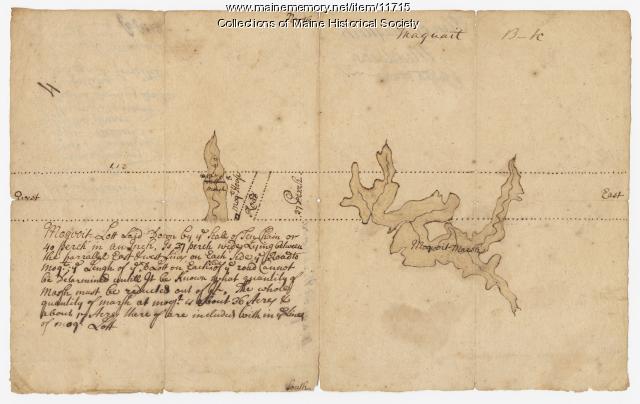 www.mainememory.net/item/11715
Collections of Maine Historical Society
Maquait B-K
4
112
West
East
Road
37 Perch
Maquoit Marsh
Moqoit Lott Laid Down by ye Scale of Ten Cham or
40 perch in an Inch, Is 37 perch wide Lying between
the parralel East & West Lines on Each Side ye Road to
moqt, ye Length of ye Lott on Each of ye road Cannot
be Determined untill It be Known what quantity of
Marsh must be reducted out of It. The whole
quantity of marsh at moqt is about 36 Acres &
about 17 Acres there of are included with in ye Lines
of moqt Lott
South